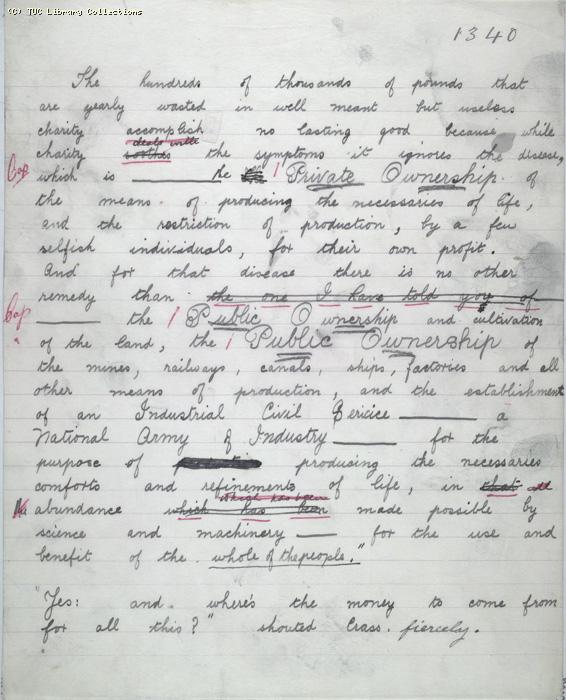 (C) TUC Library Collections
1340
The hundreds of thousands of pounds that
are yearly wasted in well meant but useless
charity accomplish no lasting good because while
deals with
charity soothes the symptoms it ignores the disease,
Cap which is — the Private Ownership of
the means of producing the necessaries of life,
and the restriction of production, by a few
selfish individuals, for their own profit.
And for that disease there is no other
remedy than the one I have told you of
Cap — the Public Ownership and cultivation
of the land, the Public Ownership of
the mines, railways, canals, ships, factories and all
other means of production, and the establishment
of an Industrial Civil Service — a
National Army of Industry — for the
purpose of producing the necessaries
comforts and refinements of life, in that
which has been
abundance which has been made possible by
science and machinery — for the use and
benefit of the whole of the people."
"Yes: and where's the money to come from
for all this?" shouted Crass fiercely.